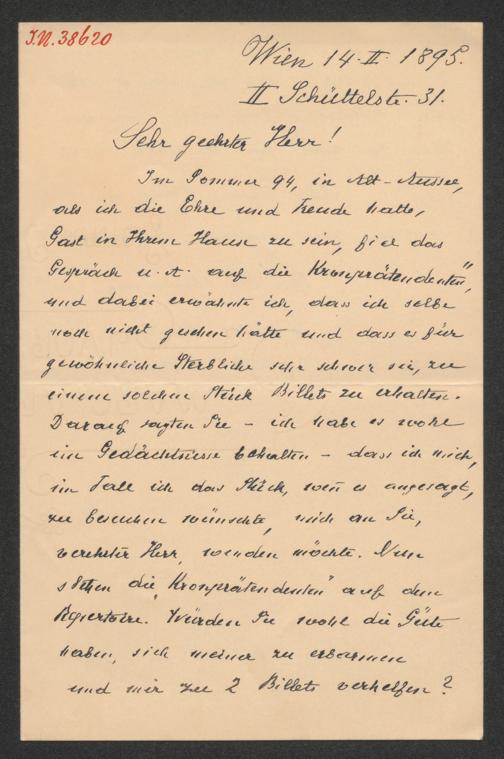 I.N. 38620
Wien 14·II· 1895.
II Schüttelstr. 31.
Sehr geehrter Herr!
Im Sommer 94, in Alt-Aussee,
als ich die Ehre und Freude hatte,
Gast in Ihrem Hause zu sein, fiel das
Gespräch u. A. auf die „Kronprätendenten",
und dabei erwähnte ich, dass ich selbe
noch nicht gesehen hätte und dass es für
gewöhnliche Sterbliche sehr schwer sei, zu
einem solchen Stück Billets zu erhalten.
Darauf sagten Sie – ich habe es wohl
im Gedächtnisse behalten – dass ich mich,
im Fall ich das Stück, wenn es angesagt,
zu besuchen wünschte, mich an Sie,
verehrter Herr, wenden möchte. Nun
stehen die „Kronprätendenten" auf dem
Repertoire. Würden Sie wohl die Güte
haben, sich meiner zu erbarmen
und mir zu 2 Billets verhelfen?